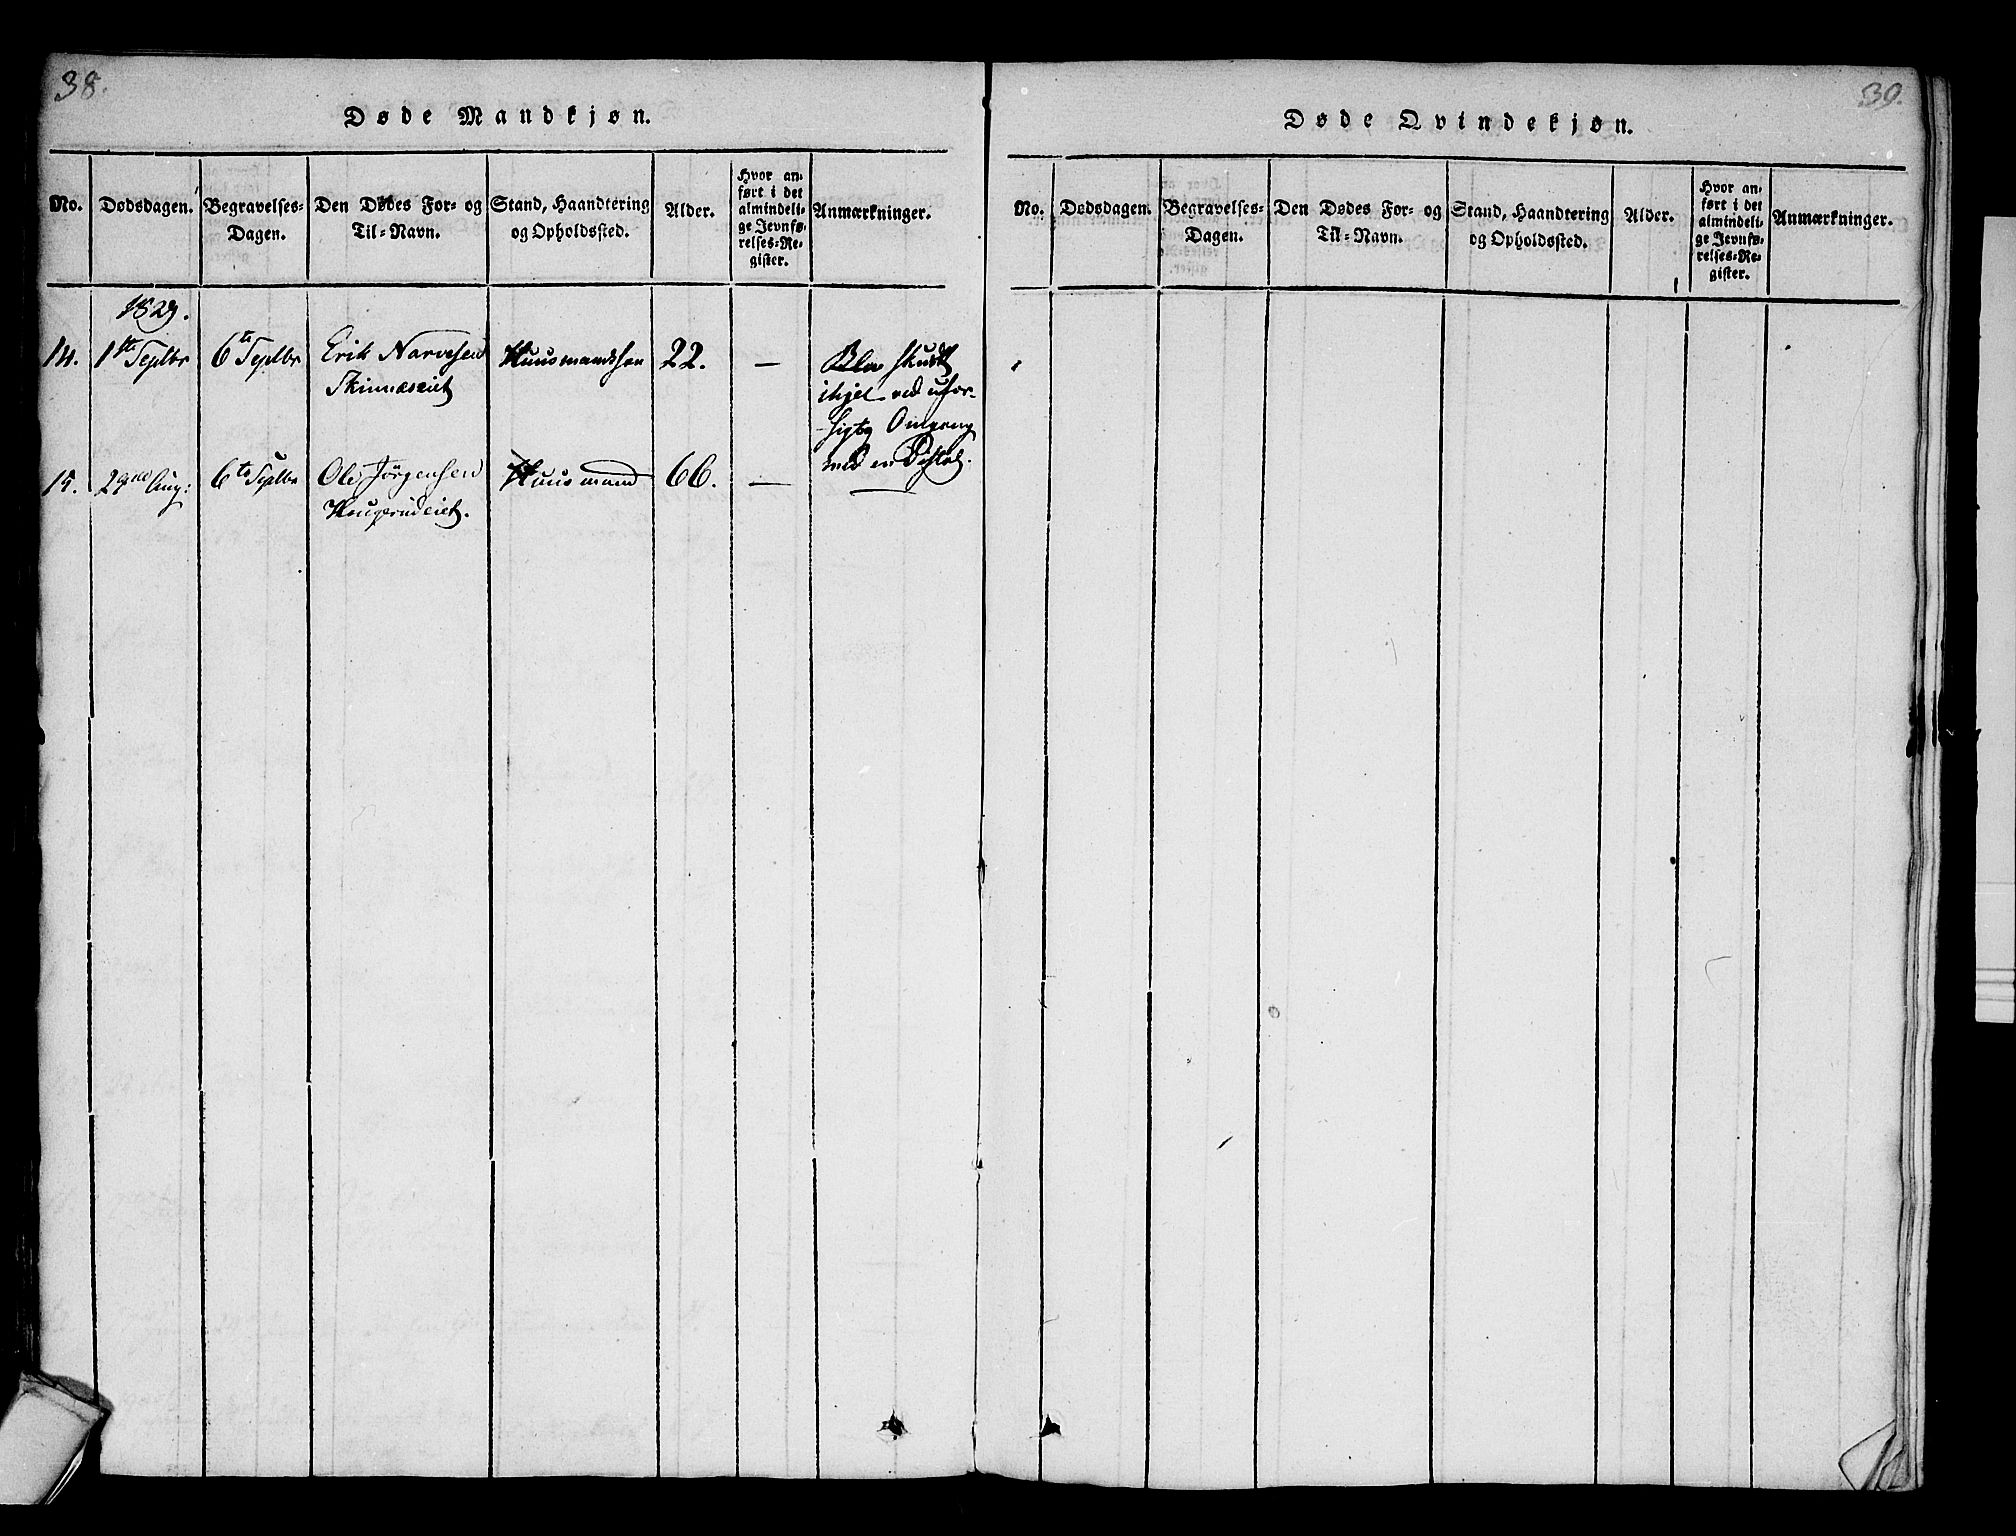 38.
Døde Mandkjøn.
No.
Dødsdagen.
Begravelses-
Dagen.
Den Dødes For- og
Til-Navn.
Stand, Haandtering
og Opholdssted.
Alder.
Hvor an-
ført i det
almindeli-
ge Jevnfø-
relses-Re-
gister.
Anmærkninger.
1829.
14. 1ste Septbr 6te Septbr Erik Narvesen Huusmandssøn 22. — Blev skudt
Skinnæseiet ihjel ved ufor-
sigtig Omgang
med en Pistol.
15. 29de Aug: 6te Septbr Ole Jörgensen Huusmand 66. — —
Haugerudeiet.
39.
Døde Qvindekjøn.
No.
Dødsdagen.
Begravelses-
Dagen.
Den Dødes For- og
Til-Navn.
Stand, Haandtering
og Opholdssted.
Alder.
Hvor an-
ført i det
almindeli-
ge Jevnfø-
relses-Re-
gister.
Anmærkninger.